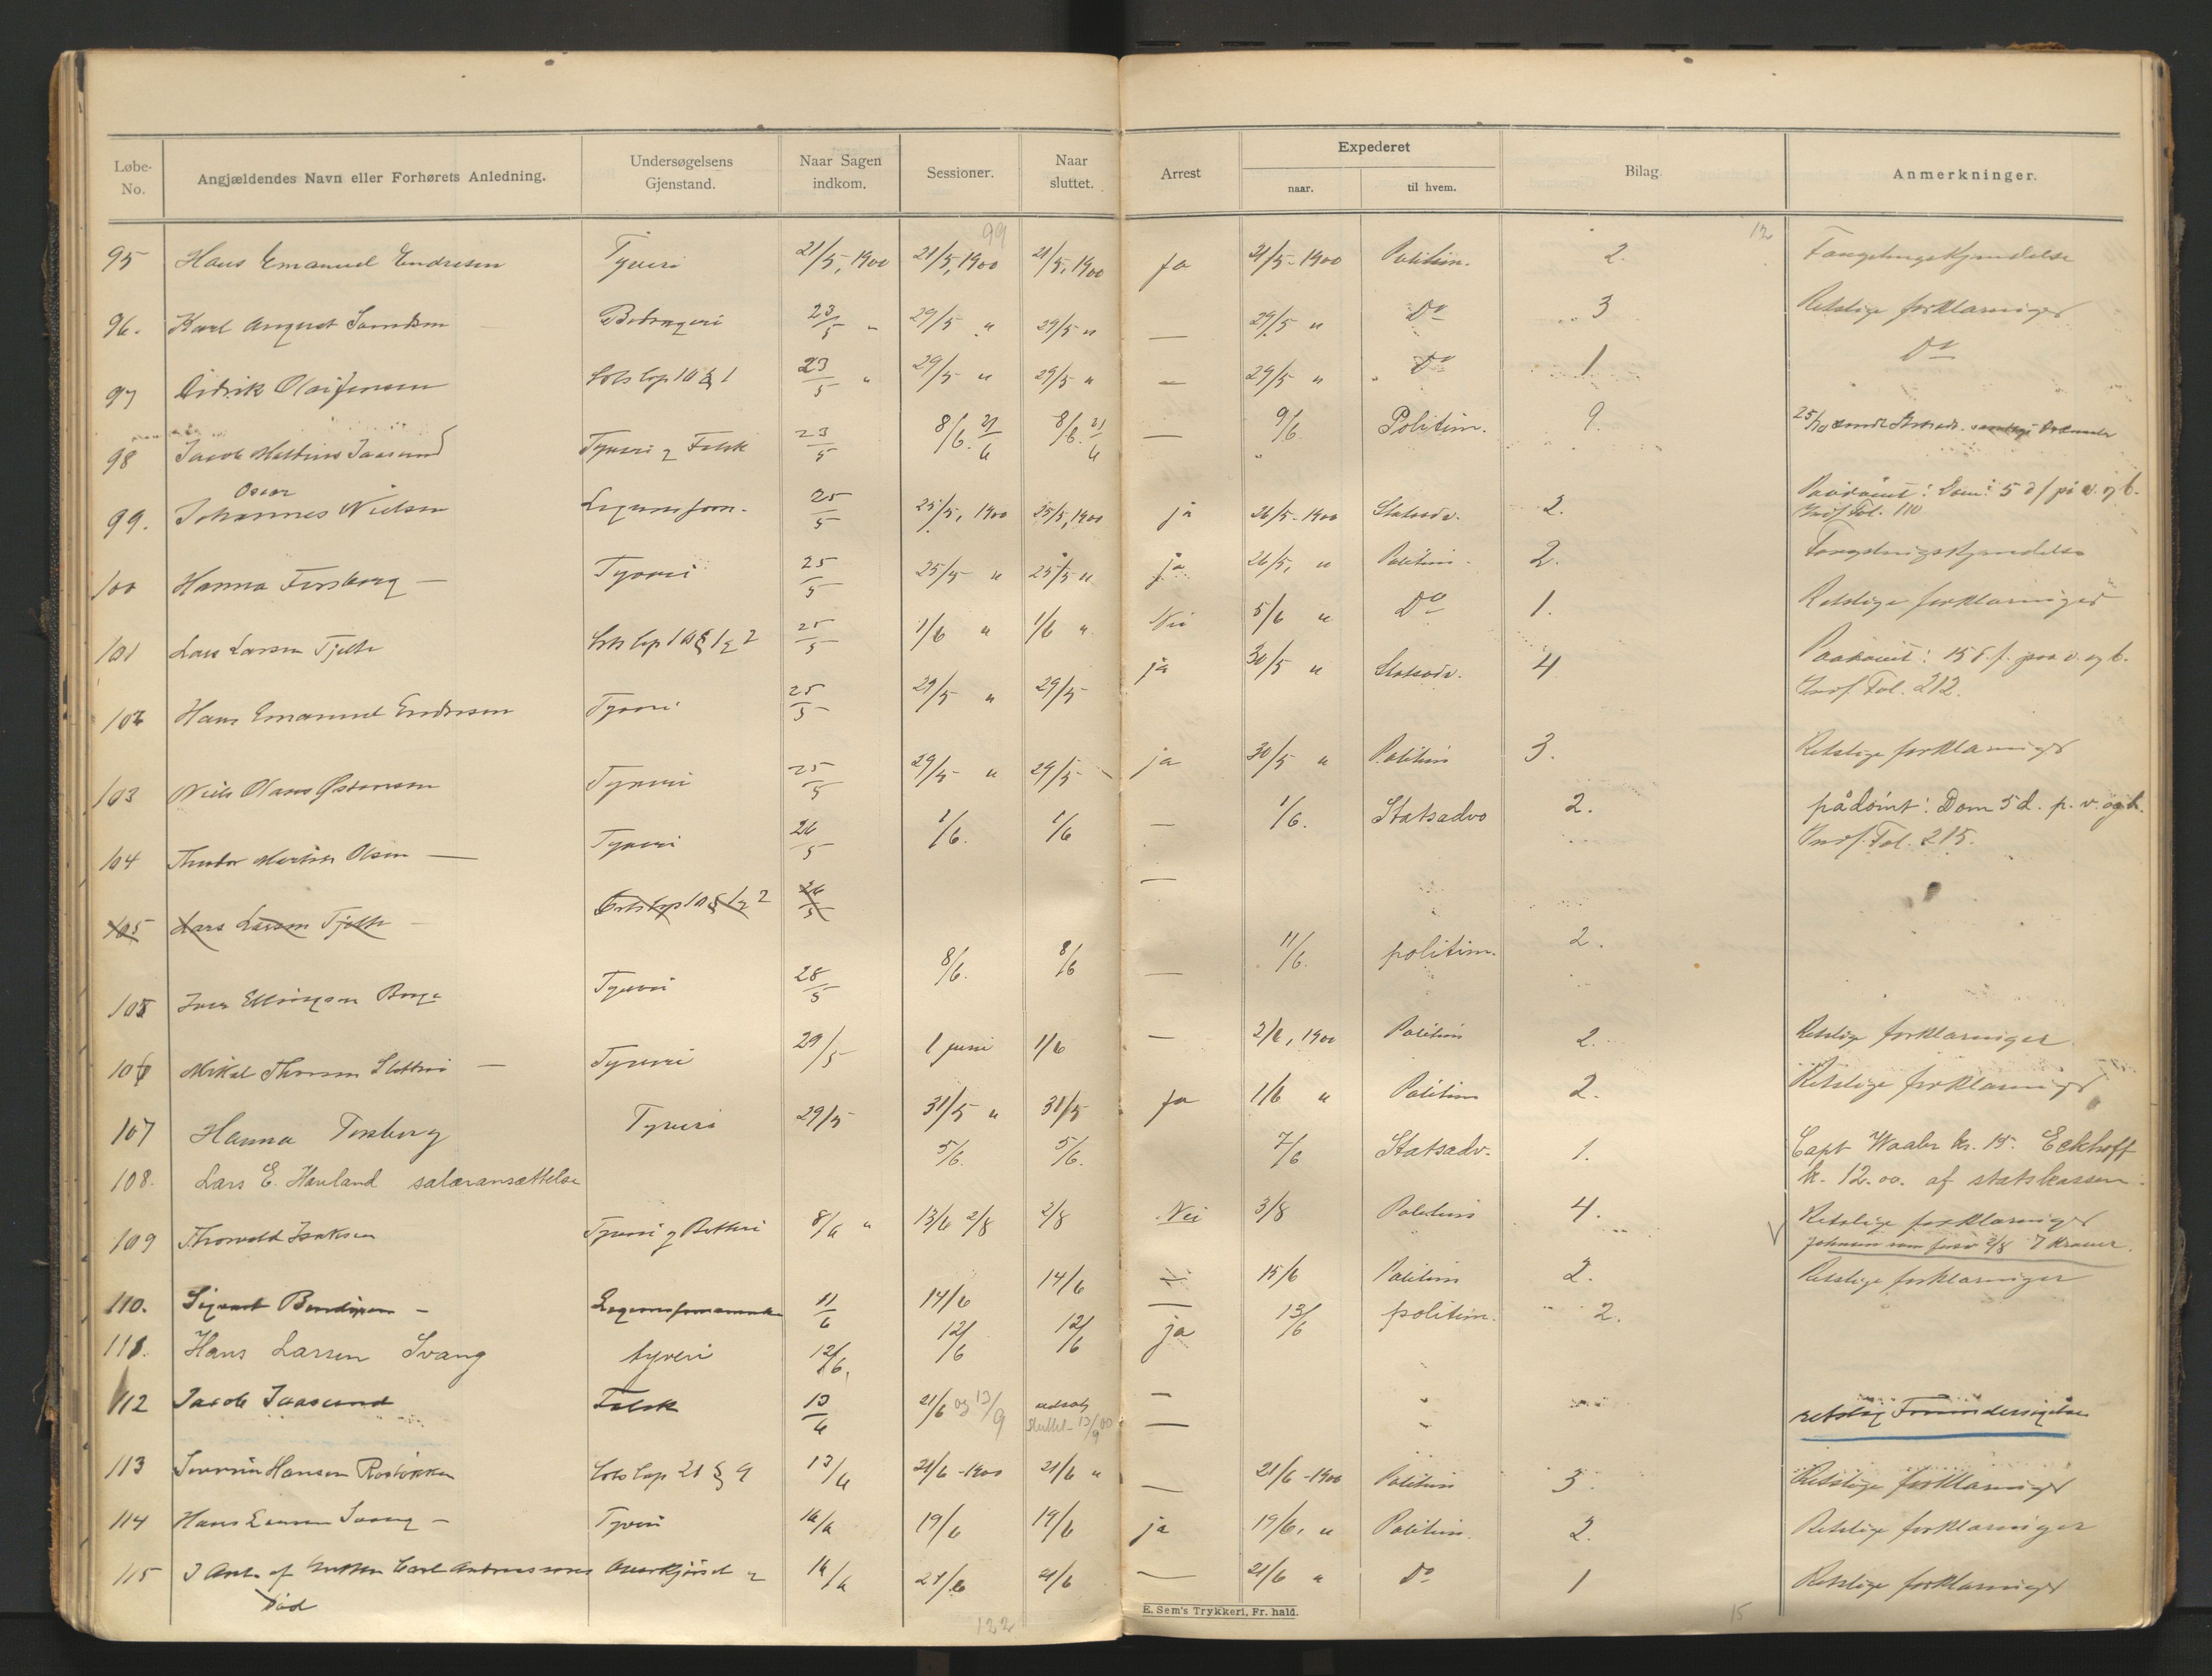 Løbe-No. Angjældendes Navn eller Forhørets Anledning. Undersøgelsens Gjenstand. Naar Sagen indkom. Sessioner. Naar sluttet. Arrest Expederet naar. til hvem. Bilag. Anmerkninger.
99 12
95 Hans Emanuel Endresen Tyveri 21/5, 1900 21/5, 1900 21/5, 1900 ja 21/5-1900 Politim. 2. Fængslingskjendelse
96. Karl August Bedrageri 23/5 " 29/5 " 29/5 " — 29/5 " Do 3 Retslige forklaringer
97 Didrik Olai Jensen Lots Cap 10 § 1 23/5 " 29/5 " 29/5 " — 29/5 " Do 1 Do
98 Jacob Jaasund Tyveri & Falsk 23/5 8/6. 21/6 8/6. 21/6 — 9/6 Politim. 9. 25/10
Oscar
99. Johannes Nielsen 25/5 25/5, 1900 25/5, 1900 ja 26/5-1900 Statsadv. 2. Paadømt: Dom: 5 d f på v. og b.
Fol. 110
100 Hanna Forsberg — Tyveri 25/5 25/5 " 25/5 " ja 26/5, " Politim. 2. Fængslingskjendelse
101 Lars Larsen Tjelta Lots Cap 10 § 1 & 2 25/5 1/6 " 1/6 " Nei 5/6 " Do 1. Retslige forklaringer
102 Hans Emanuel Endresen Tyveri 25/5 29/5 " 29/5 ja 30/5 " Statsadv. 4 Paadømt: 15 d. f. paa v. og b.
Fol. 212.
103 Niels Olaus Østensen Tyveri 25/5 29/5 " 29/5 ja 30/5 " Politim 3. Retslige forklaringer
104 Theodor Martin Olsen — Tyveri 26/5 1/6. 1/6 — 1/6. Statsadvo 2. pådömt: Dom 5 d. p. v. og b.
Fol. 215.
105 Lars Larsen Tjelta — Lots Cap 10 § 1 & 2 26/5 —
105 Iver Ellingsen Tyveri 28/5 8/6. 8/6 — 11/6. politim. 2.
106 Mikal Thorsen — Tyveri 29/5 1 juni 1/6 — 2/6, 1900 Politim 2. Retslige forklaringer
107 Hanna Forsberg Tyveri 29/5 31/5 " 31/5 ja 1/6 " Politim 2. Retslige forklaringer
108. Lars E. Hauland salæransættelse 5/6. 5/6. 7/6 Statsadv. 1. Capt Waaler kr. 15. Eckhoff
k. 12.00. af statskassen.
109 Thorvald Isaksen Tyveri & Betleri 8/6 " 13/6 2/8 2/8 Nei 3/8 Politim 4. Retslige forklaringer
Johnsen som 2/8 7 Kroner.
110. Sigvart Bendixen — 11/6 14/6 14/6 — 15/6 Politim 2. Retslige forklaringer
111. Hans Larsen Svang tyveri 12/6. 12/6 12/6 ja 13/6 politim. 2.
112 Jacob Jaasund Falsk 13/6 21/6 og 13/9 udsat
sluttet 13/9 00 — retslig Forundersøgelse
113 Severin Hansen Lots Cap 21 § 9 13/6 21/6-1900 21/6 " — 21/6-1900 Politim 3. Retslige forklaringer
114 Hans Larsen Svang — Tyveri 16/6 19/6 19/6 ja 19/6, " Politim. 2. Retslige forklaringer
115 I Anl. af Gutten Carl 16/6 21/6 21/6 — 21/6 " Do 1 Retslige forklaringer
Død
E. Sem's Trykkeri, Fr. hald.
122 15